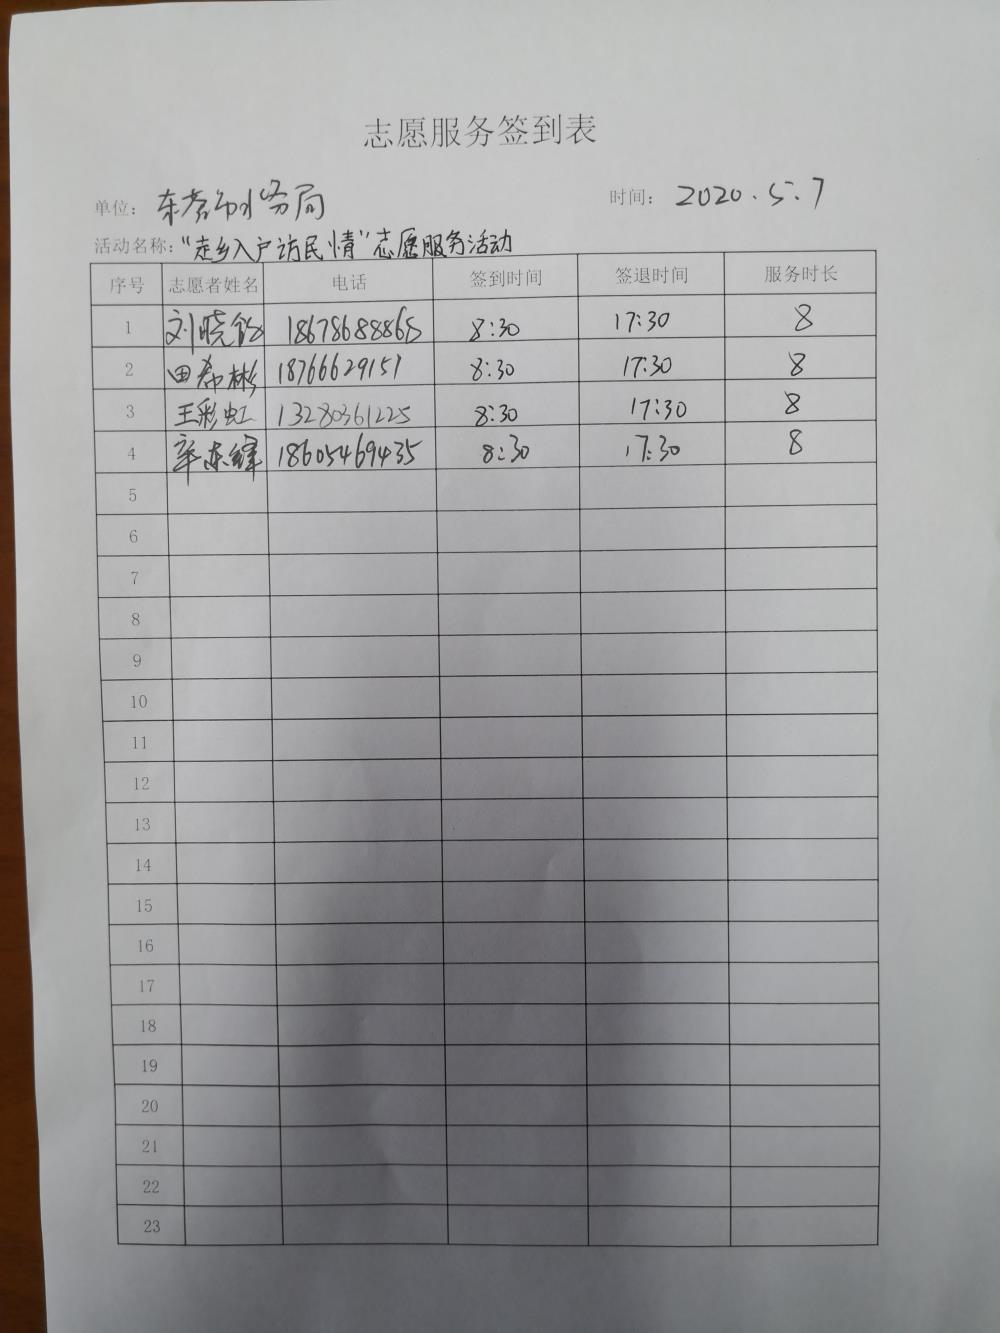 志愿服务签到表
单位：东营市水务局 时间：2020.5.7
活动名称："走乡入户访民情"志愿服务活动
序号 志愿者姓名 电话 签到时间 签退时间 服务时长
1 刘晓 18678688865 8:30 17:30 8
2 田希彬 18766629151 8:30 17:30 8
3 王彩虹 13280361225 8:30 17:30 8
4 辛东锋 18605469435 8:30 17:30 8
5
6
7
8
9
10
11
12
13
14
15
16
17
18
19
20
21
22
23